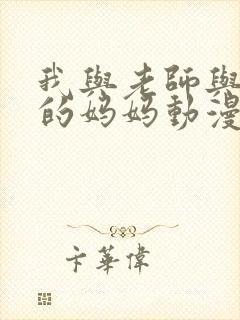 我與老師與
的媽媽動漫
卡華偉